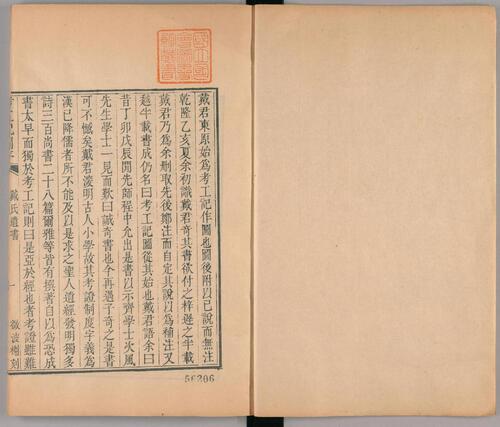 國立國
會圖書
館藏書
戴君東原始爲考工記作圖也圖後附以己說而無注
乾隆乙亥夏余初識戴君奇其書欲付之梓遲之半載
戴君乃爲余刪取先後鄭注而自定其說以爲補注又
越半載書成仍名曰考工記圖從其始也戴君語余曰
昔丁卯戊辰閒先師程中允出是書以示齊學士次風
先生學士一見而歎曰誠奇書也今再遇子奇之是書
可不憾矣戴君深明古人小學故其考證制度字義爲
漢已降儒者所不能及以是求之聖人遺經發明獨多
詩三百尚書二十八篇爾雅等皆有撰著自以爲恐成
書太早而獨於考工記則曰是亞於經也者考證雖難
戴氏遺書
一
微波榭刻